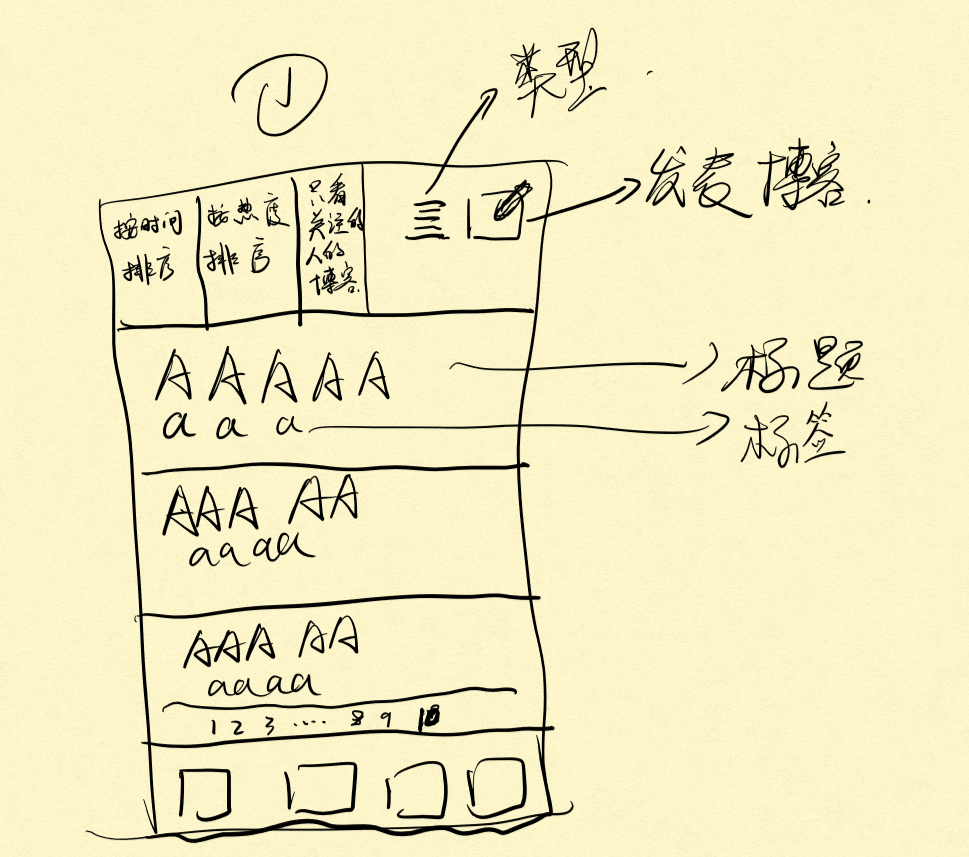 ①
类型
发表博客.
按时间
排序
按热度
排序
只看
关注的
人的
博客
A A A A A
a a a
标题
标签
AAA AA
aaaa
AAA AA
aaaa
1 2 3 .... 8 9 10